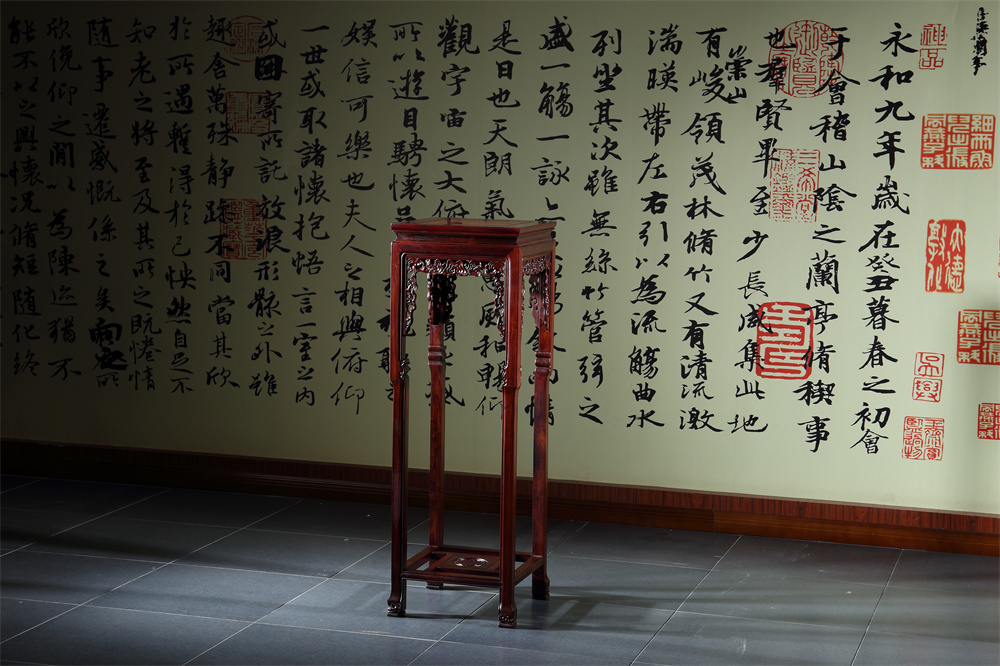 神品
永和九年歲在癸丑暮春之初會
于會稽山陰之蘭亭脩稧事
也羣賢畢至少長咸集此地
有崇山峻領茂林脩竹又有清流激
湍暎帶左右引以為流觴曲水
列坐其次雖無絲竹管弦之
盛一觴一詠亦情
是日也天朗氣風和暢仰
觀宇宙之大俯類之盛
所以遊目騁懷視聽之
娛信可樂也夫人之相與俯仰
一世或取諸懷抱悟言一室之內
或因寄所託放浪形骸之外雖
趣舍萬殊静躁不同當其欣
於所遇暫得於己怏然自足不
知老之將至及其所之既惓情
隨事遷感慨係之矣向之所
欣俛仰之閒以為陳迹猶不
能不以之興懷況脩短隨化終